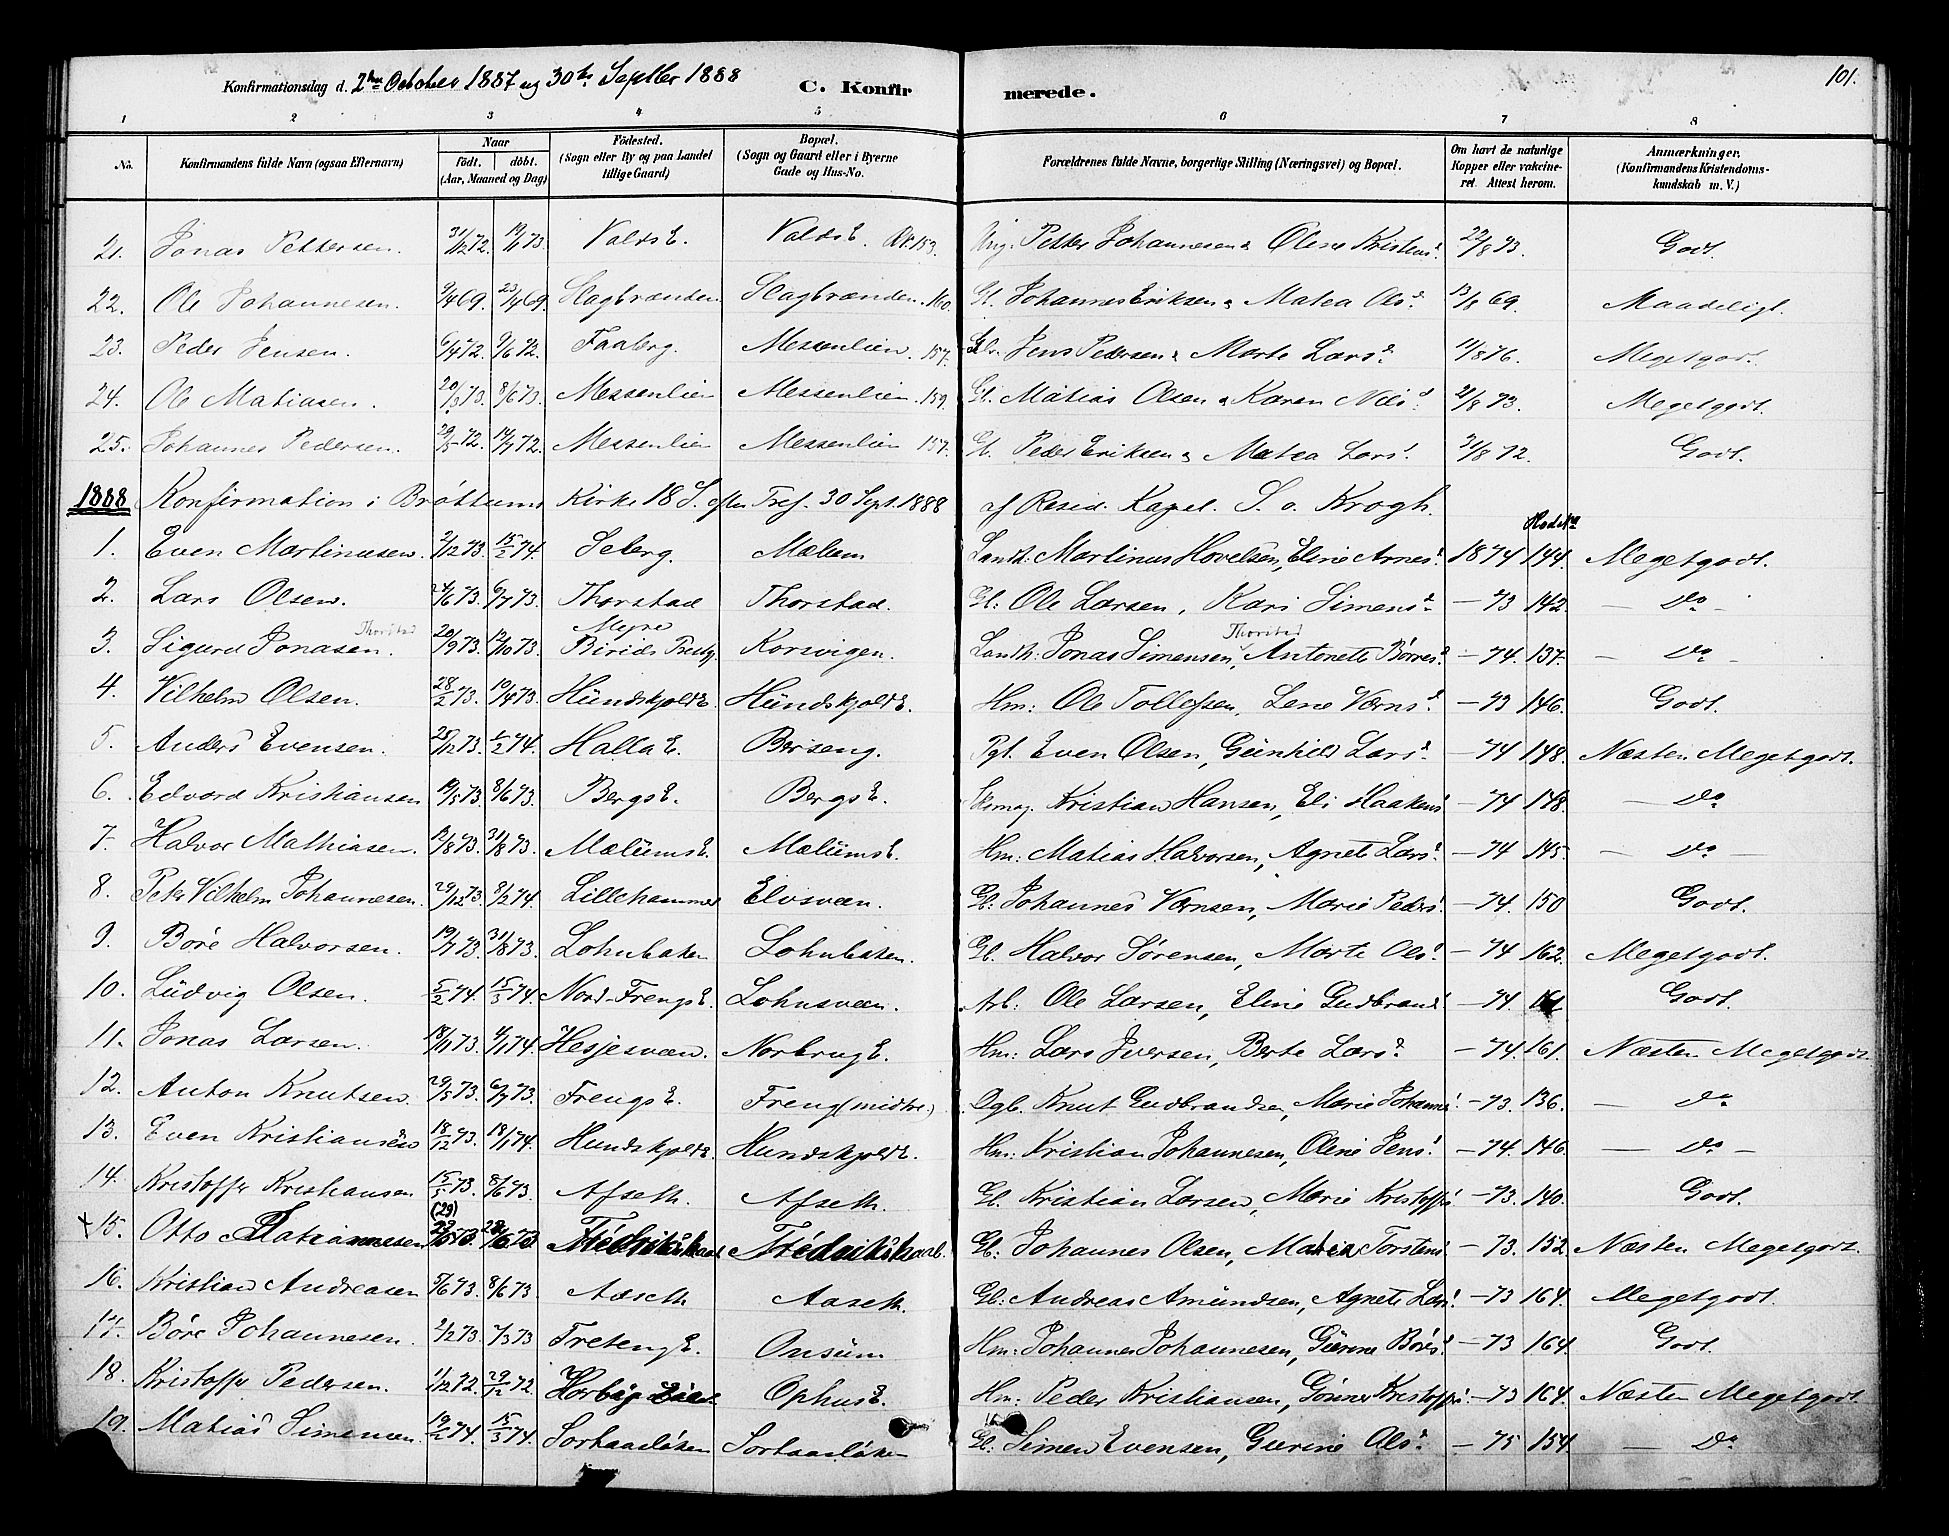 Konfirmationsdag d. 2den October 1887 og 30te Septbr 1888 C. Konfirmerede. 101.
1 2 3 4 5 6 7 8
No. Konfirmandens fulde Navn (ogsaa Efternavn) Naar födt. döbt. (Aar, Maaned og Dag) Födested. (Sogn eller By og paa Landet tillige Gaard) Bopæl. (Sogn og Gaard eller i Byerne Gade og Hus-No. Forældrenes fulde Navne, borgerlige Stilling (Næringsvei) og Bopæl. Om havt de naturlige Kopper eller vakcineret. Attest herom. Anmærkninger, (Konfirmandens Kristendomskundskab m. V.)
21. Jonas Pettersen. 31/12 72. 19/1 73. Valds E. Valds E. 153. Petter Johannesen & Oline Kristensd 22/8 73. Godt.
22. Ole Johannesen. 9/4 69. 23/4 69. Slagbrænden Slagbrænden. 160. Gb. Johannes Eriksen & Matea Olsd 13/8 69. Maadeligt.
23. Peder Jensen. 6/4 72. 9/6 72. Faaberg. Messenlien. 157. Jens Pedersen & Marte Larsd 11/8 76. Megetgodt.
24. Ole Matiasen. 20/3 73. 8/6 73. Messenlien Messenlien. 159. Gb. Matias Olsen & Karen Nilsd 21/8 73. Megetgodt.
25. Johannes Pedersen. 29/5 72. 14/7 72. Messenlien Messenlien 157. Gb. Peder Eriksen & Matea Larsd. 31/8 72. Godt.
1888 Konfirmation i Brøttums Kirke 18 S. efter Tref. 30 Sept. 1888 af Resid. Kapel. S. o. Krogh.
1. Even Martinusen. 2/12 73. 15/2 74. Seberg. Mælum Landh: Martinus Hovelsen, Eline Arnesd 1874 144. Megetgodt.
2. Lars Olsen. 24/6 73. 6/7 73. Thorstad Thorstad. Gb: Ole Larsen, Kari Simensd – 73 142. – Do –
3. Sigurd Jonasen. Thorstad 20/9 73. 12/10 73. Birids Prestg. Korsvigen. Landh: Jonas Simensen, Thorstad Antonette Børresd – 74. 137. – Do –
4. Vilhelm Olsen. 28/2 73. 19/4 73. Hundskjold E. Hundskjold E. Hm: Ole Tollefsen, Lene Værnsd – 73 146. Godt.
5. Anders Evensen. 28/12 73. 1/2 74. Halla E. Berseng. Pgl. Even Olsen, Gunhild Larsd – 74 148. Næsten Megetgodt.
6. Edvard Kristiansen 19/5 73. 8/6 73. Bergs E. Bergs E. Kristian Hansen, Eli Haakensd – 74 148. – Do
7. Halvor Mathiasen. 12/8 73. 31/8 73. Mælums E. Mælums E. Hm: Matias Halvorsen, Agnete Larsd. – 74 145. – Do –
8. Peter Vilhelm Johannesen. 29/12 73. 8/2 74. Lillehammer Elvsvæen. Gb: Johannes Værnsen, Marie Pedersd. – 74. 150 Godt.
9. Børe Halvorsen. 19/7 73. 31/8 73. Lohnbaken Lohnbaken. Gb. Halvor Sørensen, Marte Olsd – 74 162. Megetgodt.
10. Ludvig Olsen. 5/2 74. 15/3 74. Nord-Frengs E. Lohnsvæen. Arb: Ole Larsen, Eline Gudbrandsd – 74. 161 Godt.
11. Jonas Larsen. 18/11 73. 4/1 74. Hesjesvæen. Norbrug E. Hm: Lars Iversen, Berte Larsd – 74. 161. Næsten Megetgodt
12. Anton Knutsen. 29/5 73. 6/7 73. Frengs E. Freng (midtre.) Knut Gudbrandsen, Marie Johannesd. – 73. 136. – Do
13. Even Kristiansen 18/12 73. 18/1 74. Hundskjold E. Hundskjold E. Hm: Kristian Johannesen, Oline Jensd – 74. 146. – Do –
14. Kristoffer Kristiansen 15/5 73. 8/6 73. Afseth. Afseth. Gb. Kristian Larsen, Marie Kristoffersd – 73. 140. Godt.
15. Otto Johannesen (29) Gb. Johannes Olsen, Torstensd – 73. 152. Næsten Megetgodt.
16. Kristian Andreasen 5/6 73. 8/6 73. Aaseth Aaseth. Gb: Andreas Amundsen, Agnete Larsd. – 73 164. Megetgodt.
17. Børe Johannesen. 2/2 73. 7/3 73 Treteng E. Onsum Hm: Johannes Johannesen, Gurine Børesd – 73 164. Godt.
18. Kristoffer Pedersen. 1/12 72. 29/12 72. Ophus E. Hm: Peder Kristiansen, Kristoffersd – 73 164. Næsten Megetgodt.
19. Matias Simensen. 19/2 74. 15/3 74. Sorhaarløken Sorhaarløken Gb. Simen Evensen, Gurine Olsd – 75 154 – Do